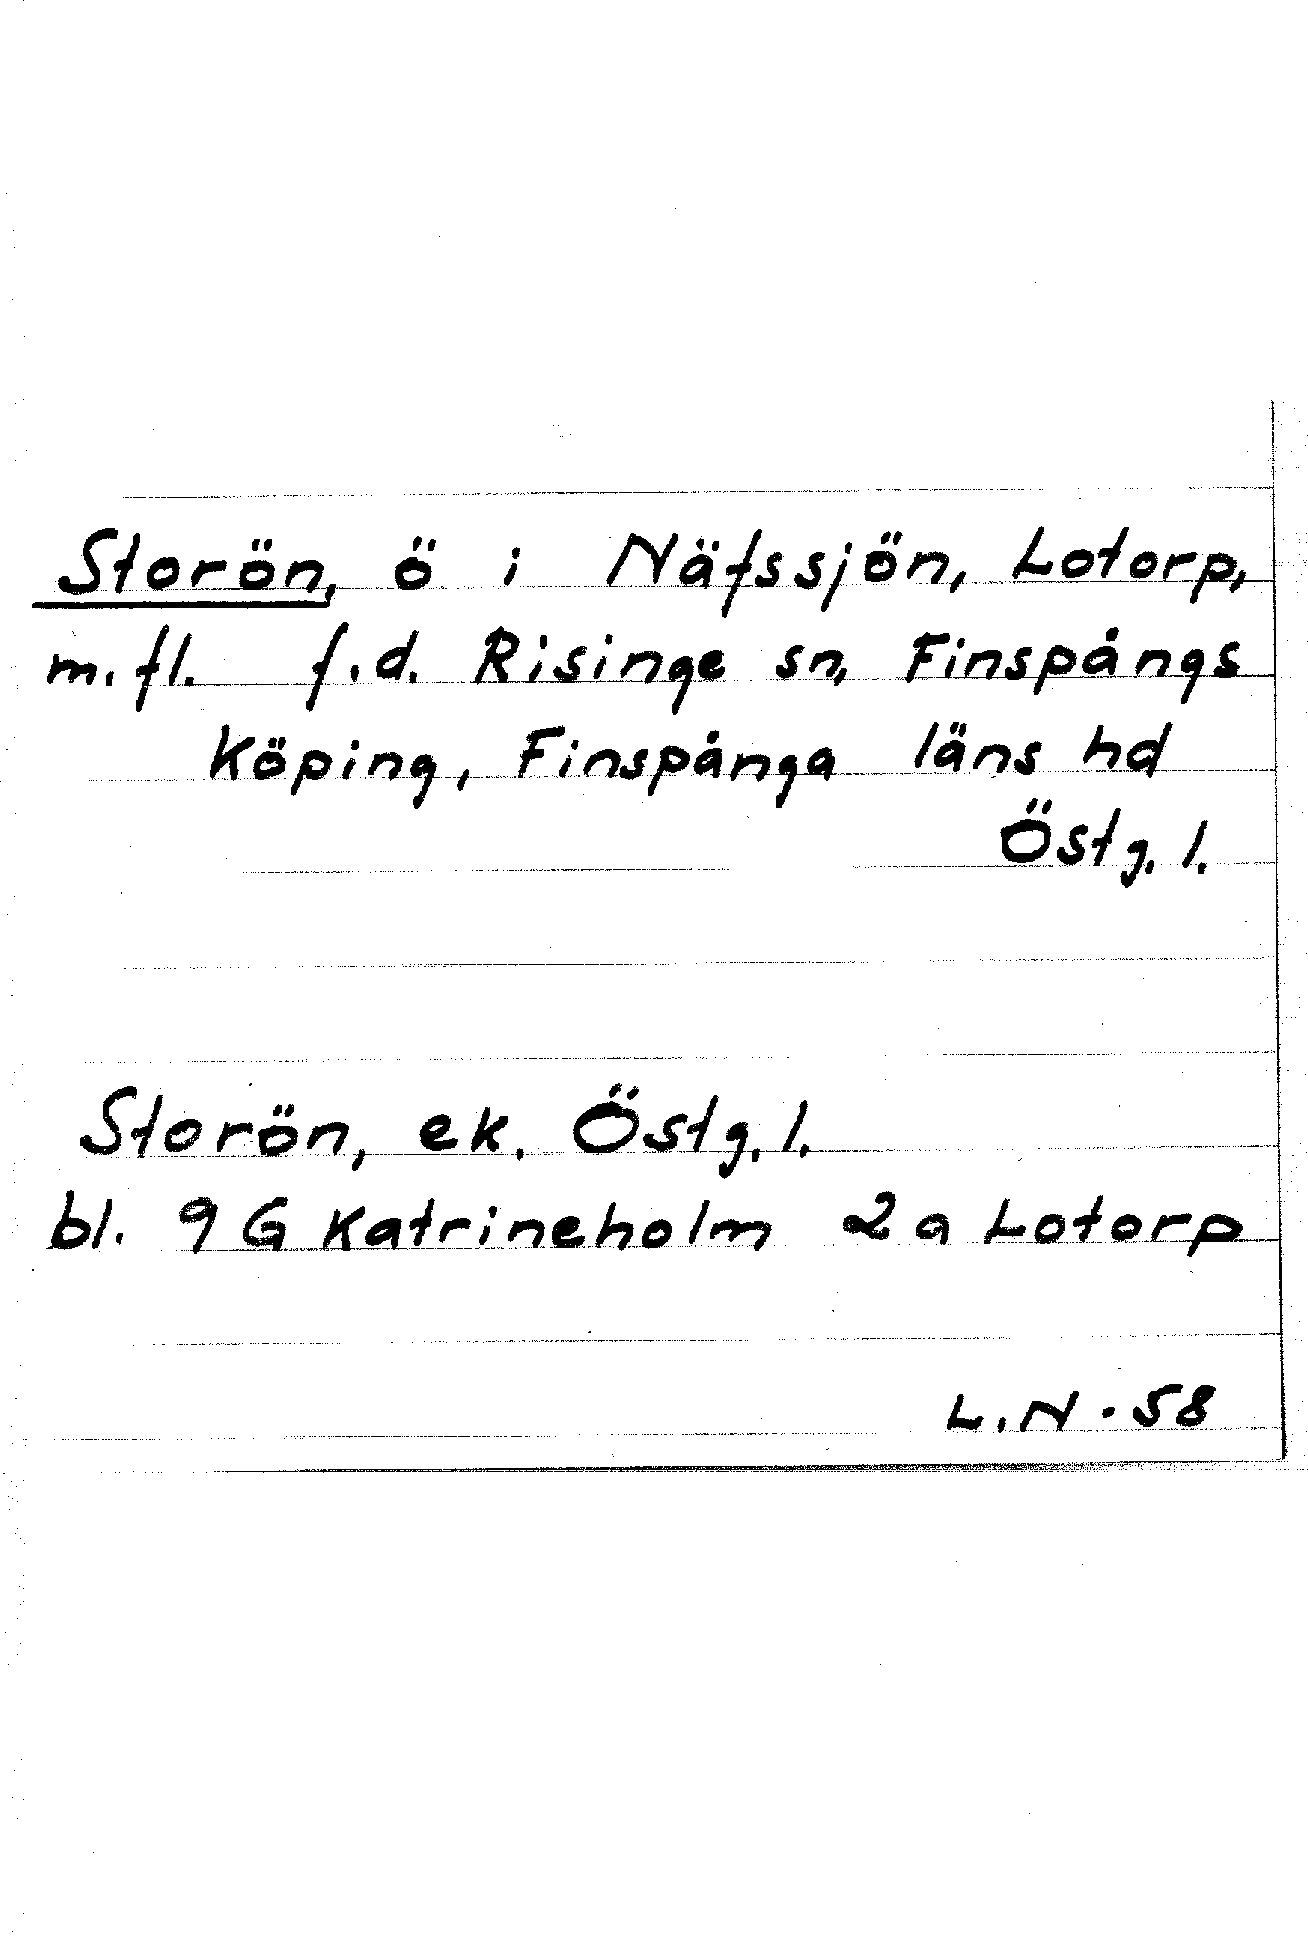 Storön, ö i Näfssjön, Lotorp,
m.fl. f.d. Risinge sn, Finspångs
Köping, Finspånga läns hd
Östg. l.
Storön, ek. Östg. l.
bl. 9 G Katrineholm 2a Lotorp
L.N. 58